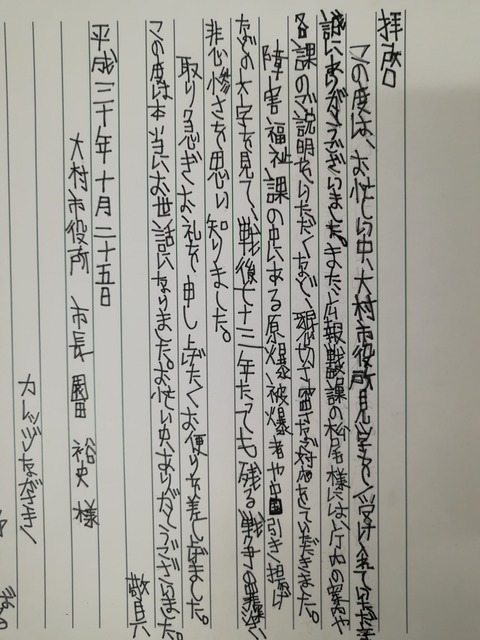 拝啓
この度は、お忙しい中、大村市役所見学を受け入れていただき
誠にありがとうございました。また広報戦略課の松尾様には、庁内の案内や
各課のご説明をいただくなど、親切で密な対応をしていただきました。
障害福祉課の中にある原爆被爆者や中国引き揚げ
などの文字を見て、戦後七十三年たっても残る戦争の
悲惨さを思い知りました。
取り急ぎお礼を申し上げたくお便りを差し上げました。
この度は本当にお世話になりました。お忙しい中ありがとうございました。
敬具
平成三十年十月二十五日
大村市役所 市長 園田 裕史 様
カレッジながさき